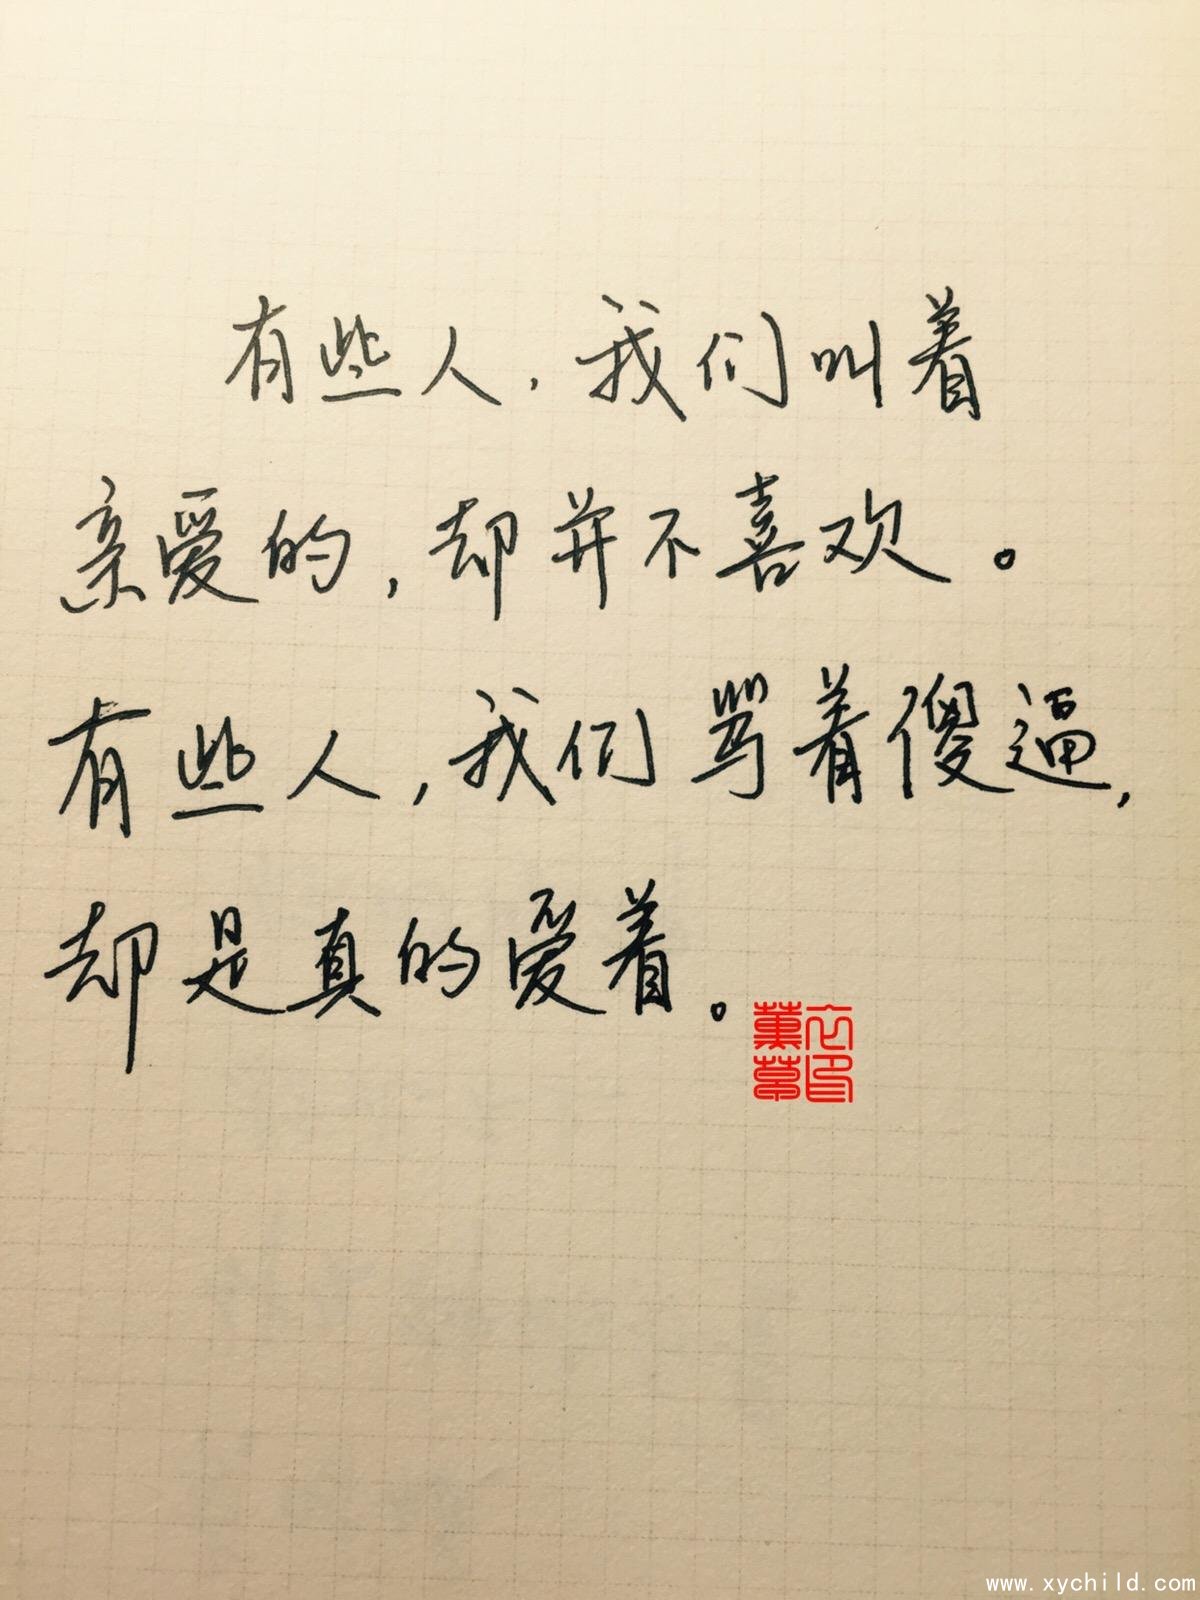 有些人，我们叫着
亲爱的，却并不喜欢。
有些人，我们骂着傻逼，
却是真的爱着。
www.xychild.com